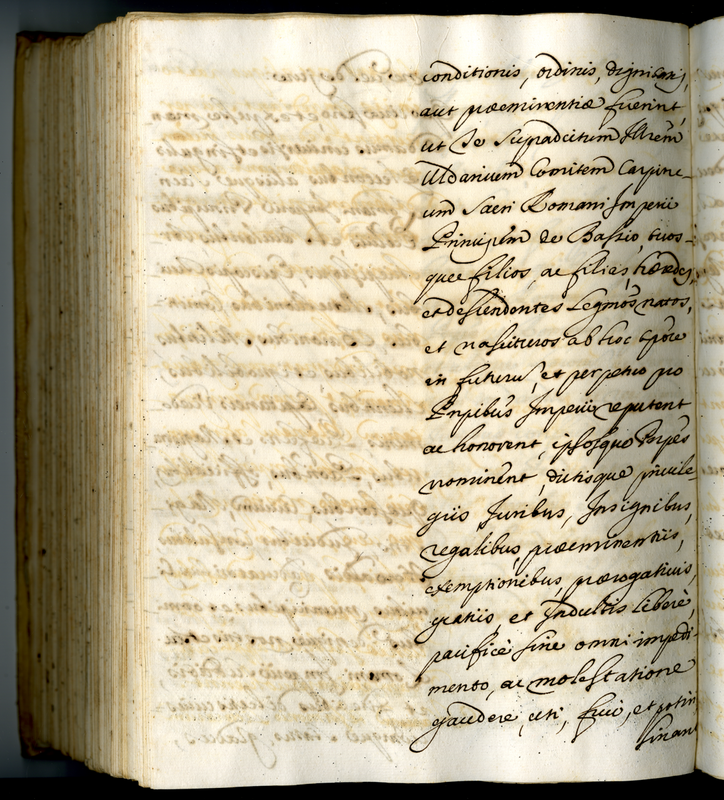 conditionis, ordinis, dignitatis,
aut præeminentiæ fuerint,
ut te supradictum Illrem
Uldaricum Comitem Carpine-
um Sacri Romani Imperii
Principem de Bassio, tuos-
que filios, ac filias, hæredes,
et descendentes legmos natos,
et nascituros ab hoc tpore
in futuru, et perpetuo pro
Pnpibus Imperii reputent
ac honorent, ipsosque Pnpes
nominent, dictisque privile-
giis Juribus, Insignibus,
regalibus, præeminentiis,
exemptionibus, prærogativis,
gratiis, et Indultis liberè,
pacificè sine omni impedi-
mento, ac molestatione
gaudere, uti, frui, et potiri
sinant